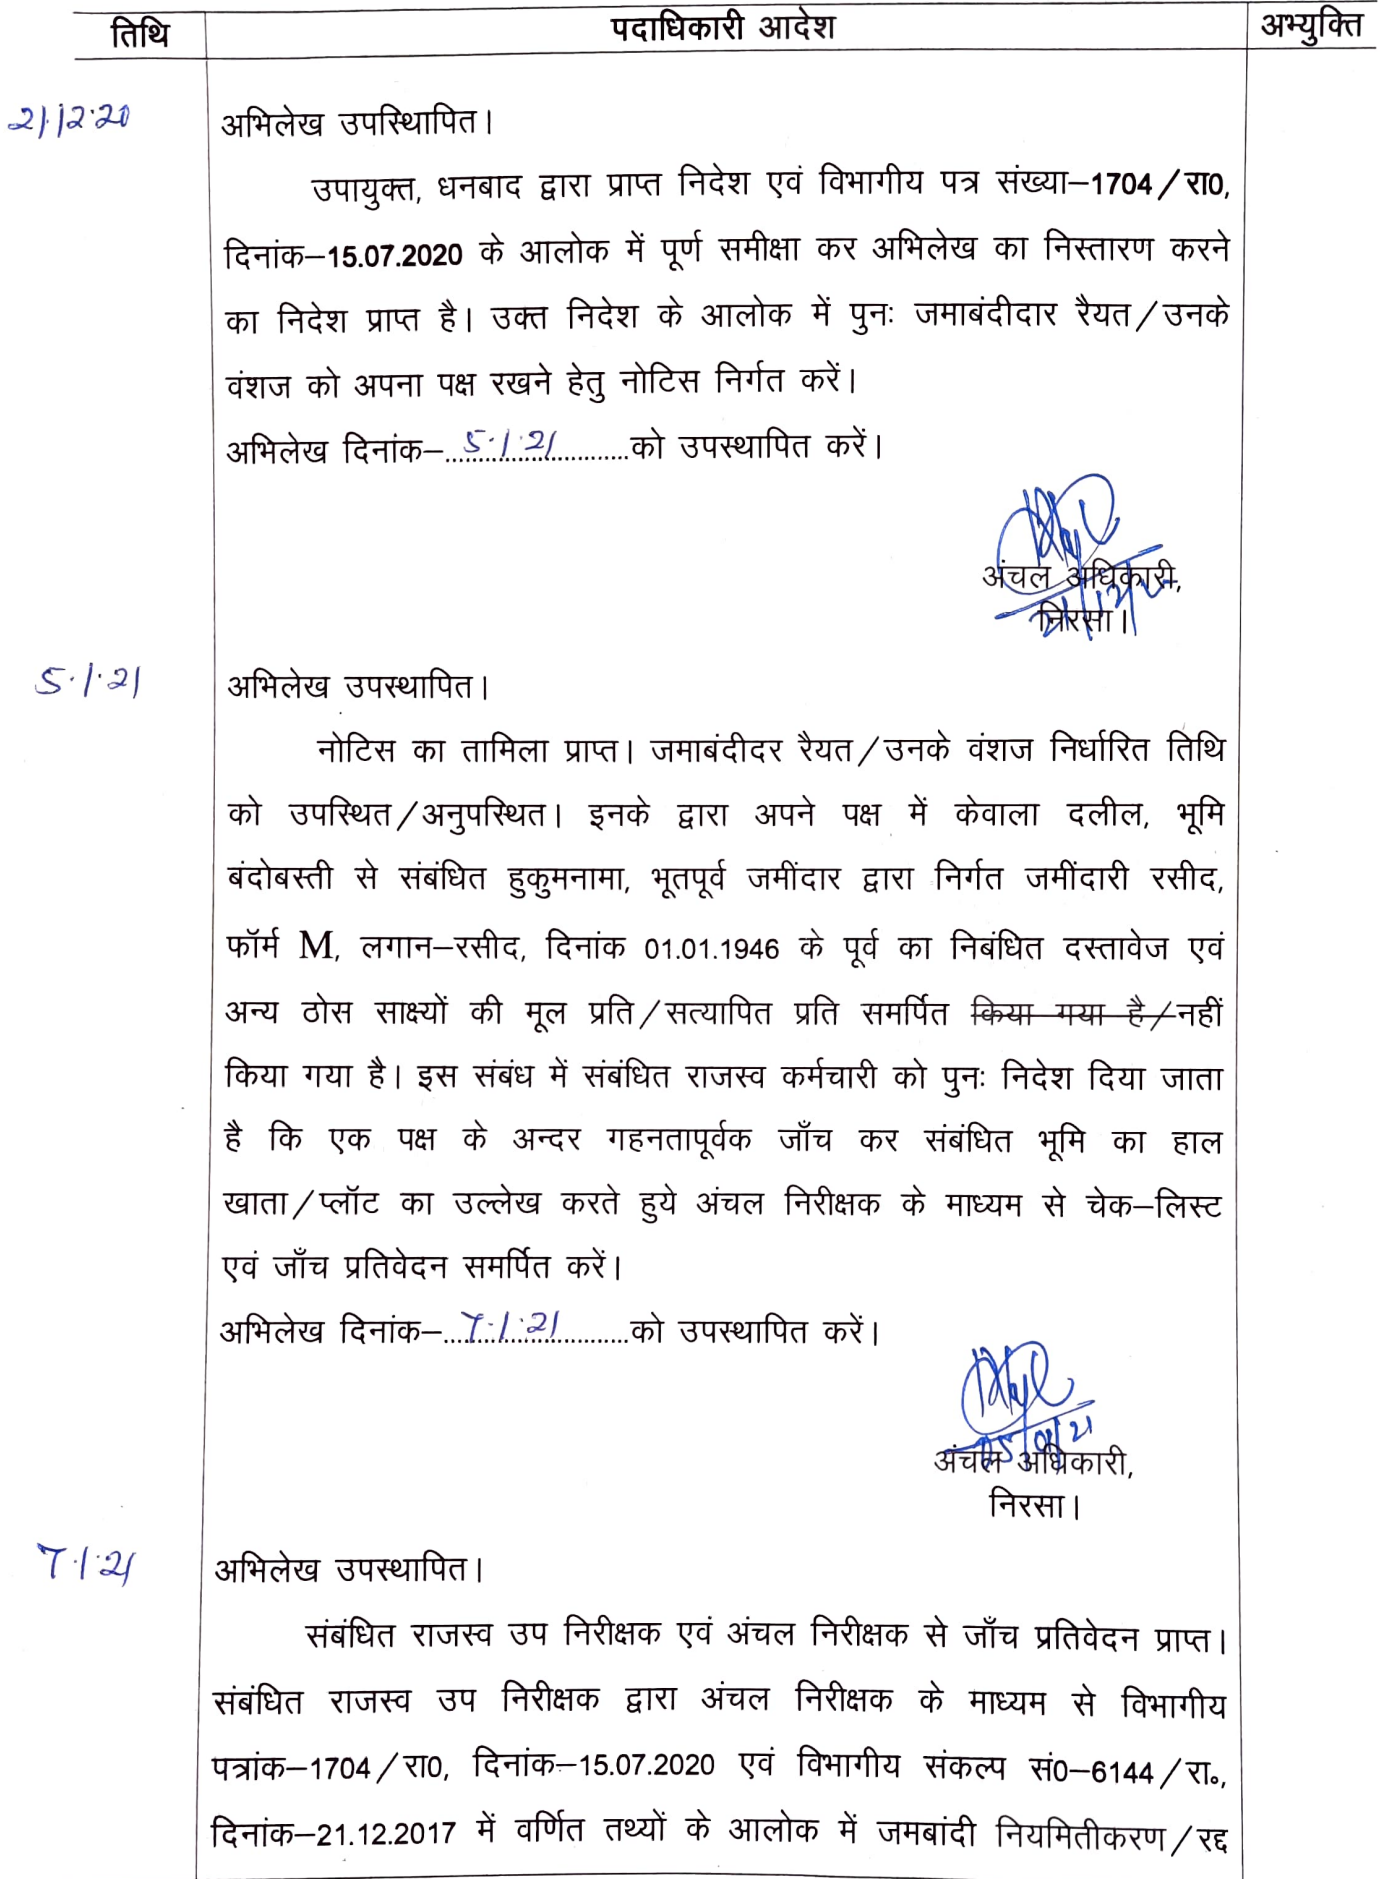 तिथि पदाधिकारी आदेश अभ्युक्ति
21.12.20 अभिलेख उपस्थिापित।
उपायुक्त, धनबाद द्वारा प्राप्त निदेश एवं विभागीय पत्र संख्या–1704/रा0,
दिनांक–15.07.2020 के आलोक में पूर्ण समीक्षा कर अभिलेख का निस्तारण करने
का निदेश प्राप्त है। उक्त निदेश के आलोक में पुनः जमाबंदीदार रैयत/उनके
वंशज को अपना पक्ष रखने हेतु नोटिस निर्गत करें।
अभिलेख दिनांक–....5.1.21....को उपस्थापित करें।
अंचल अधिकारी,
निरसा।
5.1.21 अभिलेख उपस्थापित।
नोटिस का तामिला प्राप्त। जमाबंदीदर रैयत/उनके वंशज निर्धारित तिथि
को उपस्थित/अनुपस्थित। इनके द्वारा अपने पक्ष में केवाला दलील, भूमि
बंदोबस्ती से संबंधित हुकुमनामा, भूतपूर्व जमींदार द्वारा निर्गत जमींदारी रसीद,
फॉर्म M, लगान–रसीद, दिनांक 01.01.1946 के पूर्व का निबंधित दस्तावेज एवं
अन्य ठोस साक्ष्यों की मूल प्रति/सत्यापित प्रति समर्पित किया गया है/नहीं
किया गया है। इस संबंध में संबंधित राजस्व कर्मचारी को पुनः निदेश दिया जाता
है कि एक पक्ष के अन्दर गहनतापूर्वक जाँच कर संबंधित भूमि का हाल
खाता/प्लॉट का उल्लेख करते हुये अंचल निरीक्षक के माध्यम से चेक–लिस्ट
एवं जाँच प्रतिवेदन समर्पित करें।
अभिलेख दिनांक–....7.1.21....को उपस्थापित करें।
05/01/21
अंचल अधिकारी,
निरसा।
7.1.21 अभिलेख उपस्थापित।
संबंधित राजस्व उप निरीक्षक एवं अंचल निरीक्षक से जाँच प्रतिवेदन प्राप्त।
संबंधित राजस्व उप निरीक्षक द्वारा अंचल निरीक्षक के माध्यम से विभागीय
पत्रांक–1704/रा0, दिनांक–15.07.2020 एवं विभागीय संकल्प सं0–6144/रा०,
दिनांक–21.12.2017 में वर्णित तथ्यों के आलोक में जमबांदी नियमितीकरण/रद्द